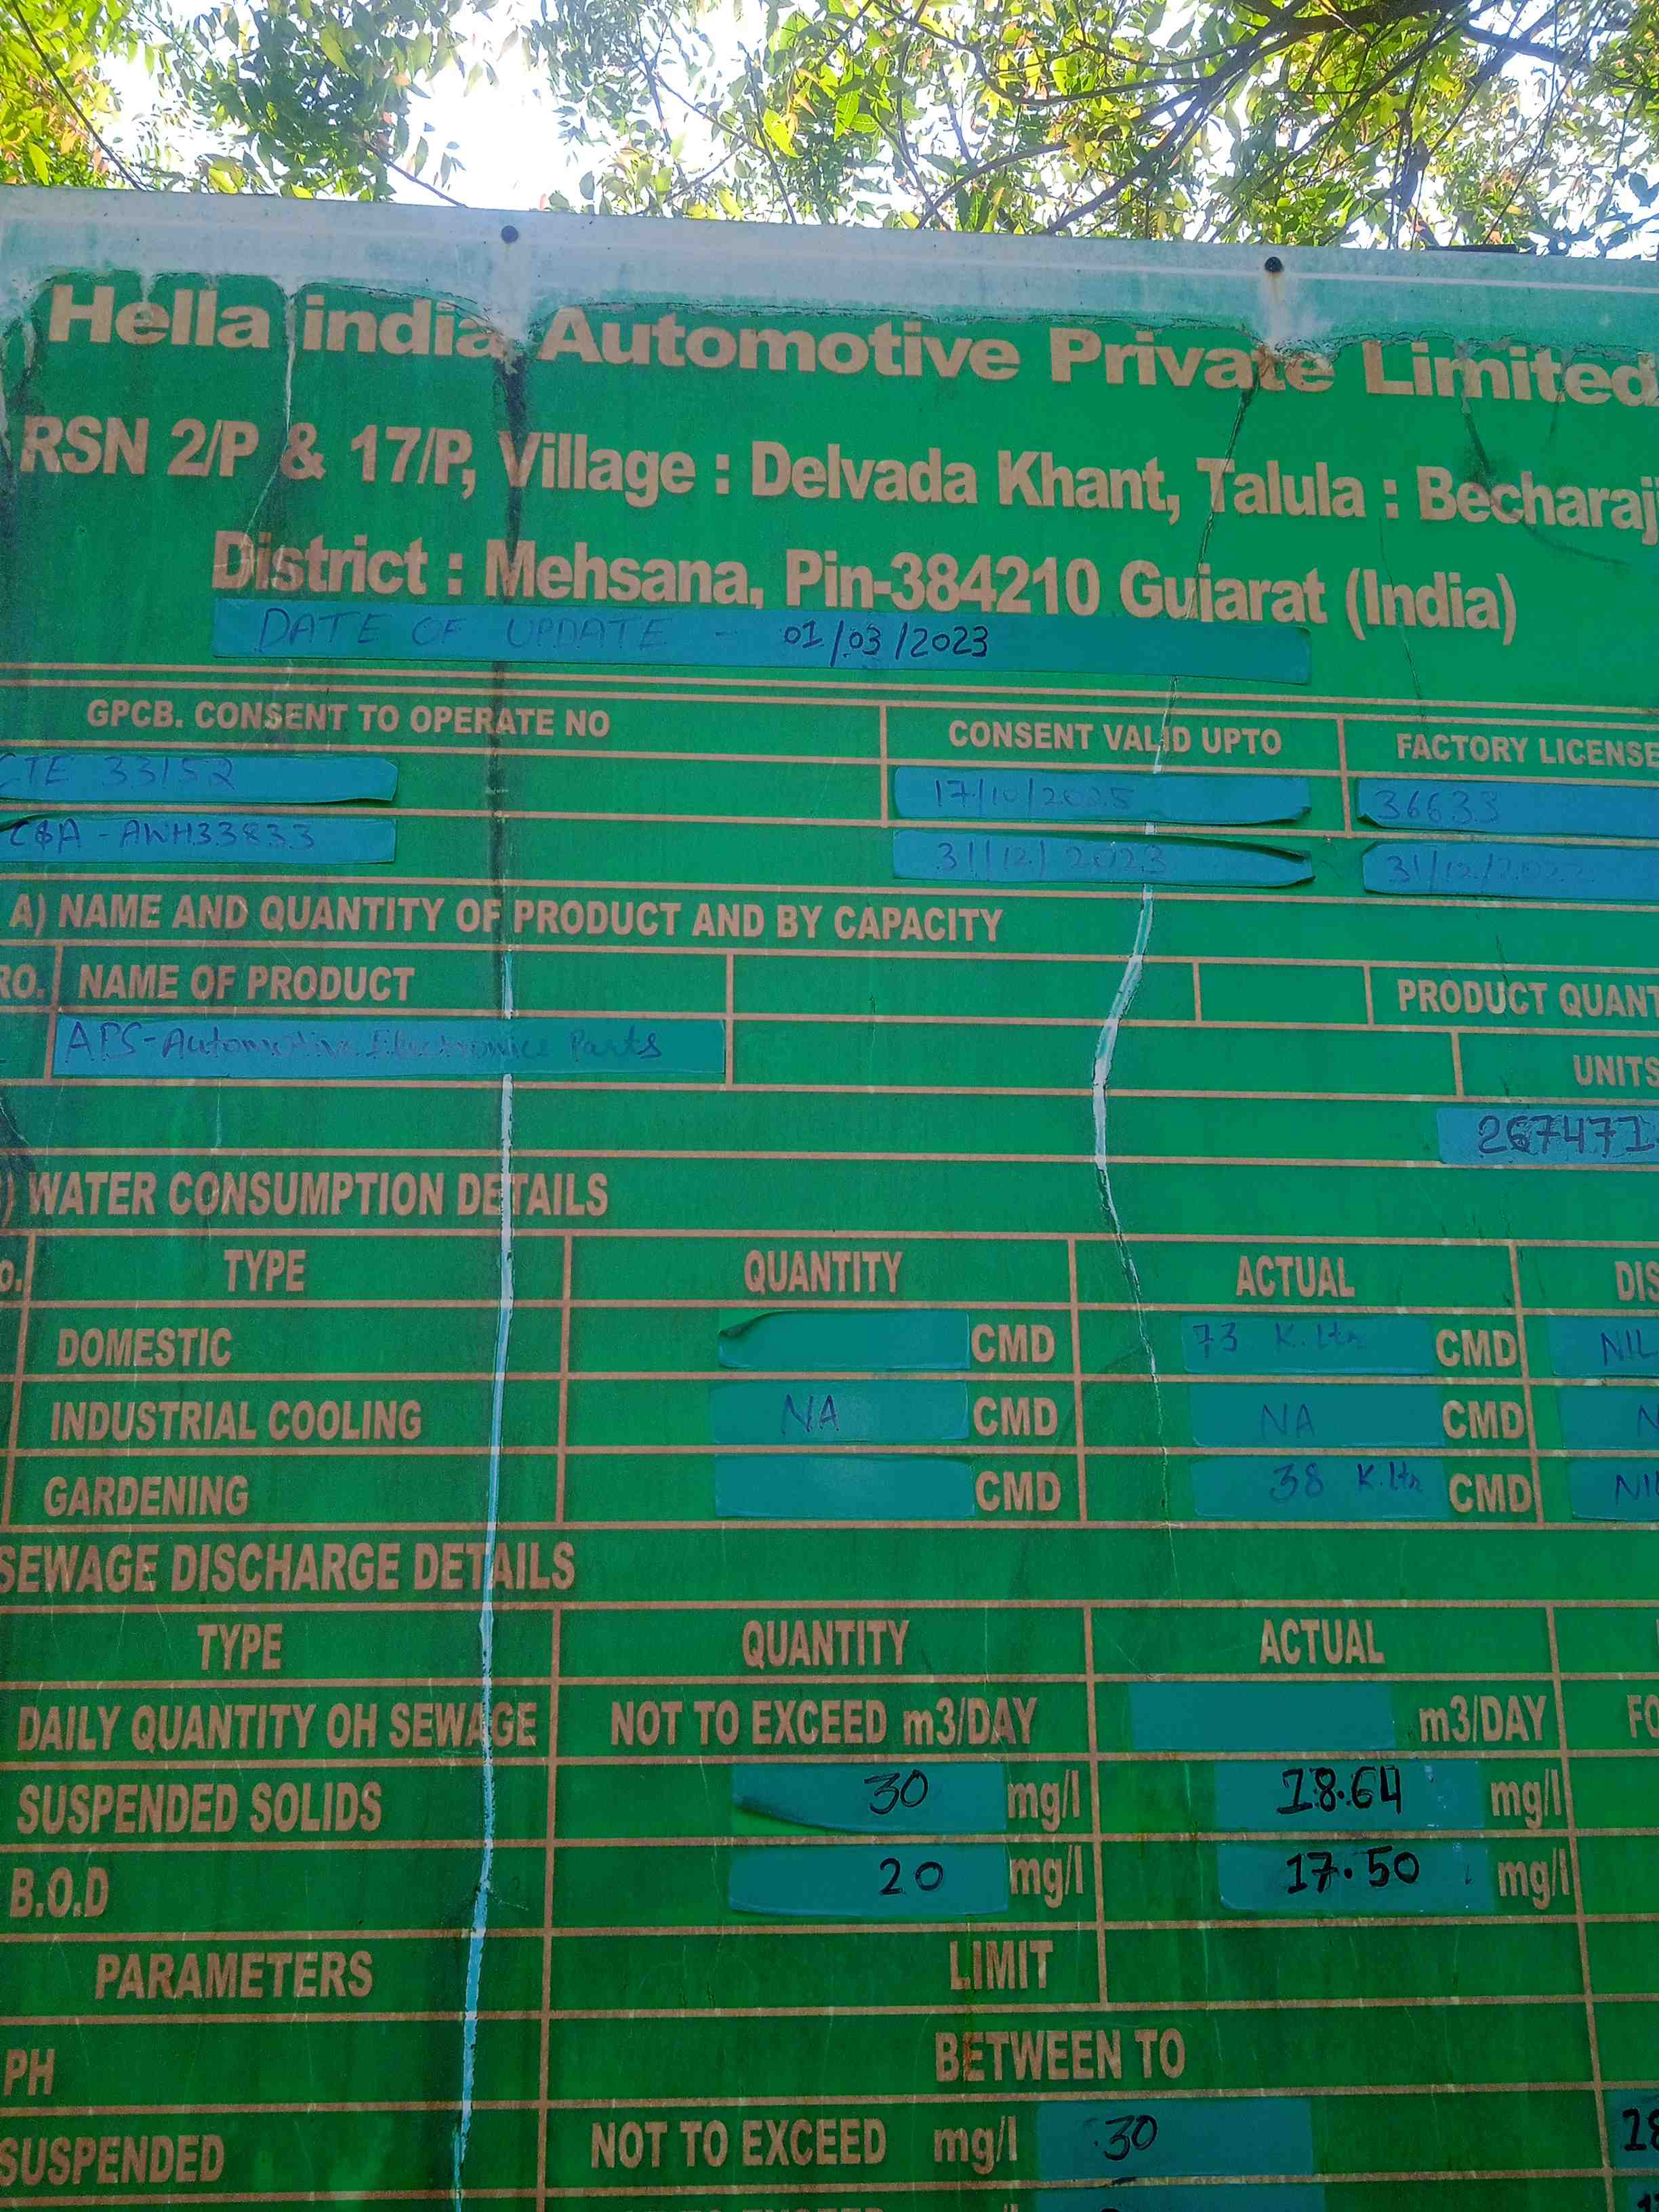 Hella india Automotive Private Limited
RSN 2/P & 17/P, Village : Delvada Khant, Talula : Becharaji
District : Mehsana, Pin-384210 Gujarat (India)
DATE OF UPDATE - 01/03/2023
GPCB. CONSENT TO OPERATE NO CONSENT VALID UPTO FACTORY LICENSE
CTE 33152 17/10/2025 36633
CC&A - AWH33833 31/12/2023 31/12/2022
A) NAME AND QUANTITY OF PRODUCT AND BY CAPACITY
RO. NAME OF PRODUCT PRODUCT QUANT
APS-Automotive Electronics Parts UNITS
267471
) WATER CONSUMPTION DETAILS
O. TYPE QUANTITY ACTUAL DIS
DOMESTIC CMD 73 K.ltr CMD NIL
INDUSTRIAL COOLING NA CMD NA CMD N
GARDENING CMD 38 K.ltr CMD NIL
SEWAGE DISCHARGE DETAILS
TYPE QUANTITY ACTUAL
DAILY QUANTITY OH SEWAGE NOT TO EXCEED m3/DAY m3/DAY FO
SUSPENDED SOLIDS 30 mg/l 18.64 mg/l
B.O.D 20 mg/l 17.50 mg/l
PARAMETERS LIMIT
PH BETWEEN TO
SUSPENDED NOT TO EXCEED mg/l 30 18